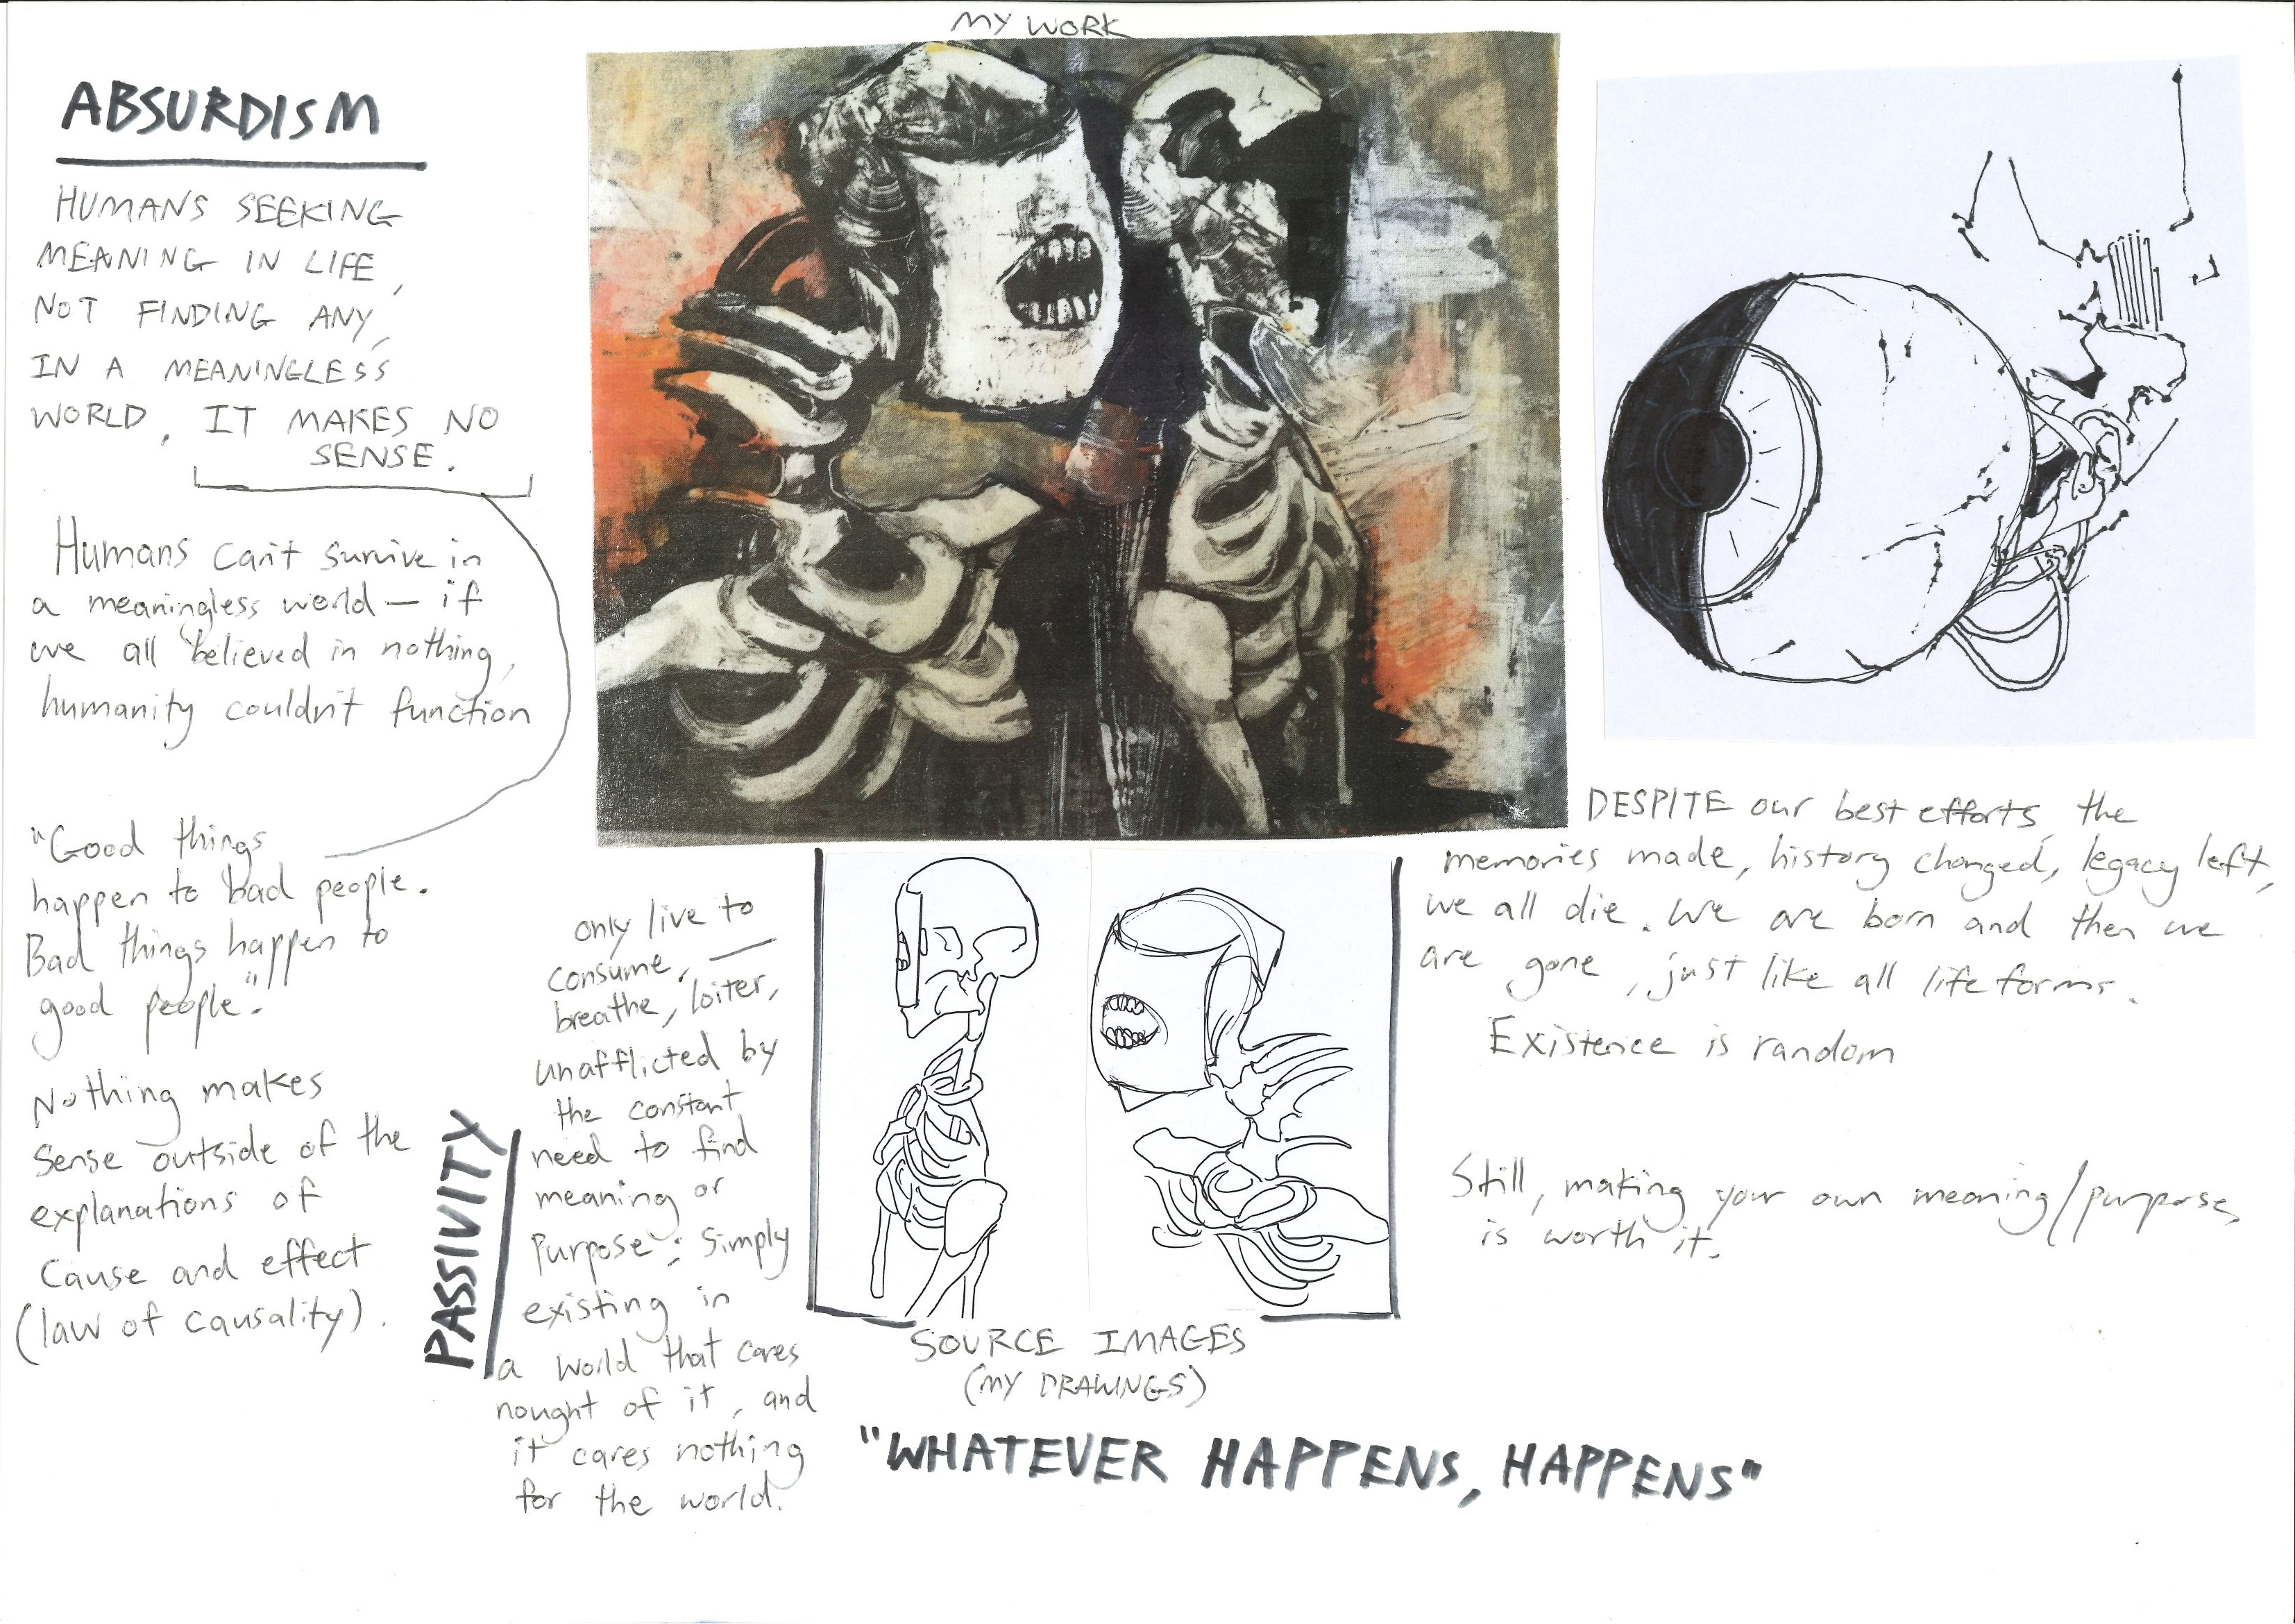 MY WORK
ABSURDISM
HUMANS SEEKING
MEANING IN LIFE,
NOT FINDING ANY,
IN A MEANINGLESS
WORLD, IT MAKES NO
SENSE.
Humans can't survive in
a meaningless world — if
we all believed in nothing,
humanity couldn't function
"Good things
happen to bad people.
Bad things happen to
good people."
Nothing makes
sense outside of the
explanations of
Cause and effect
(law of causality).
PASSIVITY
only live to
consume,
breathe, loiter,
unafflicted by
the constant
need to find
meaning or
Purpose; Simply
existing in
a world that cares
nought of it, and
it cares nothing
for the world.
SOURCE IMAGES
(MY DRAWINGS)
"WHATEVER HAPPENS, HAPPENS"
DESPITE our best efforts, the
memories made, history changed, legacy left,
we all die. We are born and then we
are gone, just like all life forms.
Existence is random
Still, making your own meaning/purpose,
is worth it.